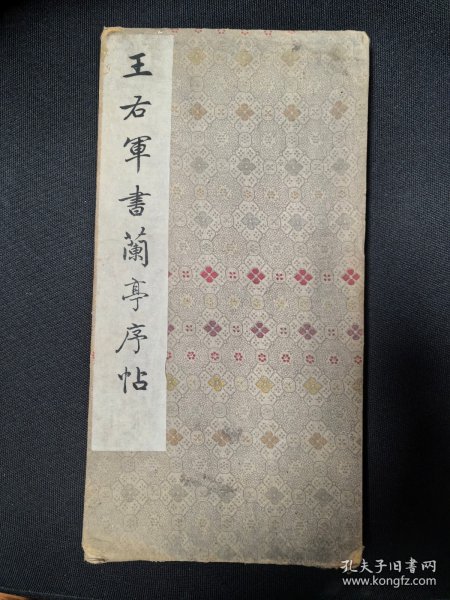 王右軍書蘭亭序帖
孔夫子旧书网
www.kongfz.com